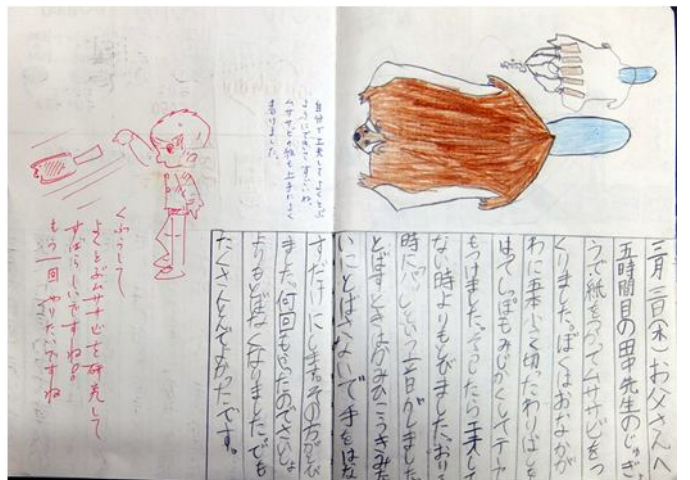 三月三日(木)お父さんへ
五時間目の田中先生のじゅぎ
うで紙をつかってムササビをつ
くりました。ぼくはおなかが
わに五本小さく切ったわりばしを
はてしっぽもみじかくしてテープ
もつけました。そうしたら工夫して
ない時よりもとびました。おりる
時にという音がしました
とばすときはかみひこうきみた
いにとばさないで手をはな
すだけにします。その方がとび
ました。何回もやったのでさいしょ
よりもとばなくなりました。でも
たくさんとんでよかったです。
自分で工夫してよくとぶ
ようにできてすごいね。
ムササビの絵も上手によく
書けました。
くふうして
よくとぶムササビを研究して
すばらしいですね。
もう一回やりたいですね